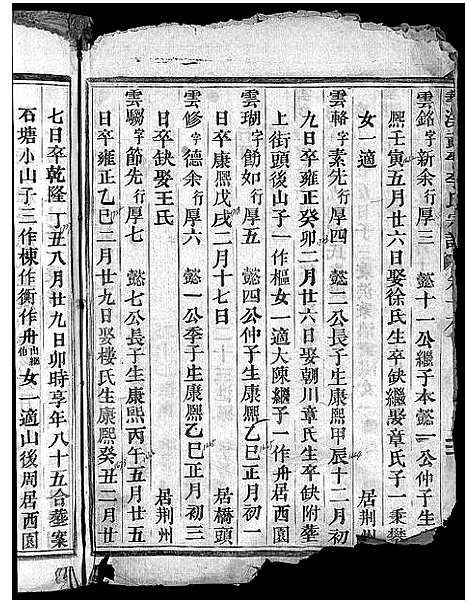 雲銘字新余行厚三 懿十一公繼子本懿一公仲子生
熙壬寅五月廿六日娶徐氏生卒缺繼娶章氏子一秉攀
女一適 居荆州
雲輅字素先行厚四 懿二公長子生康熙甲辰十二月初
九日卒雍正癸卯二月廿六日娶朝川章氏生卒缺附葬
上街頭後山子一作樞女一適大陳繼子一作舟居荆州
雲瑚字飭如行厚五 懿四公仲子生康熙乙巳正月初一
日卒康熙戊戌二月十七日 居橋頭
雲修字德余行厚六 懿一公季子生康熙乙巳正月初三
日卒缺娶王氏 居荆州
雲驄字節先行厚七 懿七公長子生康熙丙午五月廿五
日卒雍正乙巳二月廿九日娶樓氏生康熙癸丑二月廿
七日卒乾隆丁丑八月廿九日卯時享年八十五合葬案
石塘小山子三作棟作衡作舟出繼他女一適山後周居西園